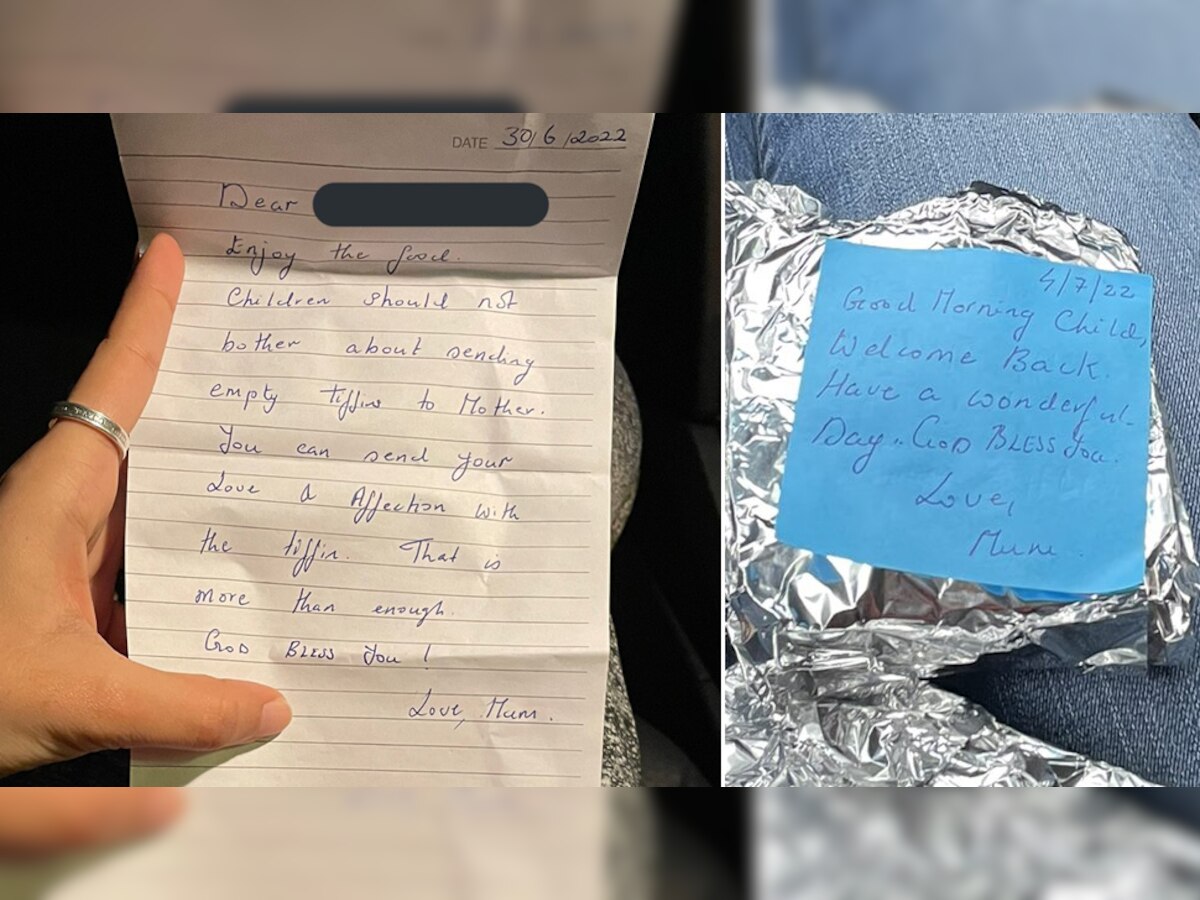 DATE 30/6/2022
Dear
Enjoy the food.
Children should not
bother about sending
empty tiffins to Mother.
You can send your
Love & Affection with
the tiffin. That is
more than enough.
GOD BLESS You!
Love, Mum.
4/7/22
Good Morning Child,
Welcome Back.
Have a wonderful
Day. GOD BLESS You.
Love,
Mum.